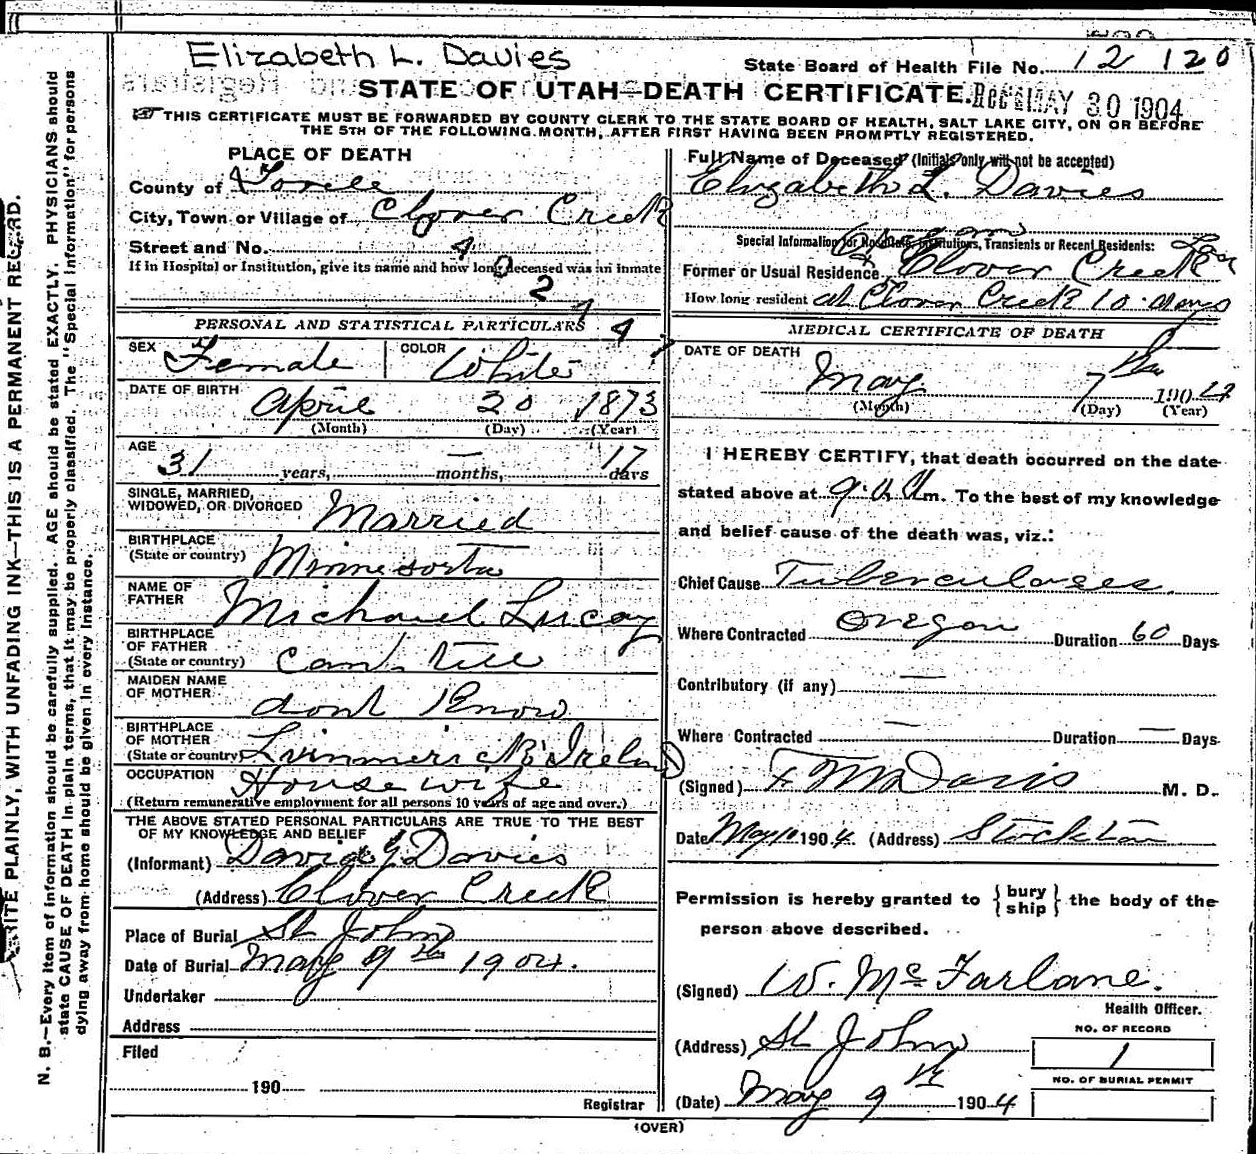 Elizabeth L. Davies
State Board of Health File No. 12 120
STATE OF UTAH—DEATH CERTIFICATE.
MAY 30 1904
THIS CERTIFICATE MUST BE FORWARDED BY COUNTY CLERK TO THE STATE BOARD OF HEALTH, SALT LAKE CITY, ON OR BEFORE
THE 5TH OF THE FOLLOWING MONTH, AFTER FIRST HAVING BEEN PROMPTLY REGISTERED.
PLACE OF DEATH
County of Tooele
City, Town or Village of Clover Creek
Street and No.
If in Hospital or Institution, give its name and how long deceased was an inmate
PERSONAL AND STATISTICAL PARTICULARS
SEX Female COLOR White
DATE OF BIRTH April 20 1873
(Month) (Day) (Year)
AGE 31 years, — months, 17 days
SINGLE, MARRIED,
WIDOWED, OR DIVORCED Married
BIRTHPLACE
(State or country) Minnesorta
NAME OF
FATHER Michael Lucay
BIRTHPLACE
OF FATHER
(State or country) cant tell
MAIDEN NAME
OF MOTHER dont Know
BIRTHPLACE
OF MOTHER
(State or country)
OCCUPATION House wife
(Return remunerative employment for all persons 10 years of age and over.)
THE ABOVE STATED PERSONAL PARTICULARS ARE TRUE TO THE BEST
OF MY KNOWLEDGE AND BELIEF
(Informant) David J Davies
(Address) Clover Creek
Place of Burial St John
Date of Burial May 9th 1904.
Undertaker
Address
Filed
190
Registrar
Full Name of Deceased (Initials only will not be accepted)
Elizabeth L. Davies
Special Information for Hospitals, Institutions, Transients or Recent Residents:
Oregon
Former or Usual Residence Clover Creek
How long resident at Clover Creek 10 days
MEDICAL CERTIFICATE OF DEATH
DATE OF DEATH
May 7 1904
(Month) (Day) (Year)
I HEREBY CERTIFY, that death occurred on the date
stated above at 9 A m. To the best of my knowledge
and belief cause of the death was, viz.:
Chief Cause Tuberculoses.
Where Contracted Oregon Duration 60 Days
Contributory (if any) —
Where Contracted — Duration — Days
(Signed) F M Davis M. D.
Date May 10 1904. (Address) Stockton
Permission is hereby granted to {bury
ship} the body of the
person above described.
(Signed) W. Mc Farlane.
Health Officer.
(Address) St John
NO. OF RECORD
1
NO. OF BURIAL PERMIT
(Date) May 9th 1904
(OVER)
WRITE PLAINLY, WITH UNFADING INK—THIS IS A PERMANENT RECORD.
N. B.—Every item of information should be carefully supplied. AGE should be stated EXACTLY. PHYSICIANS should
state CAUSE OF DEATH in plain terms, that it may be properly classified. The "Special Information" for persons
dying away from home should be given in every instance.